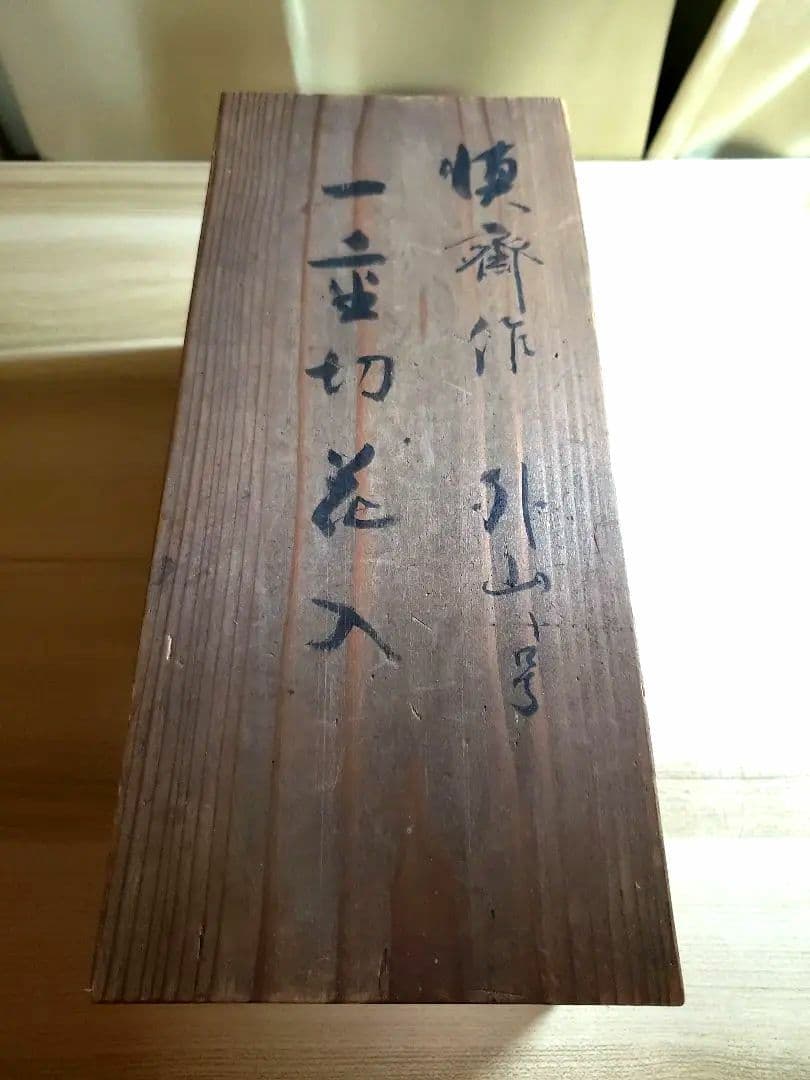 慎齋作 外山ト号
一重切花入